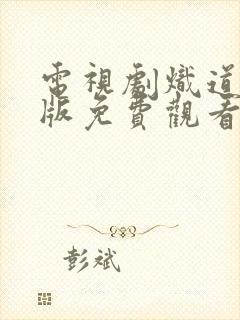 電視劇熾道
版免費觀看
彭斌